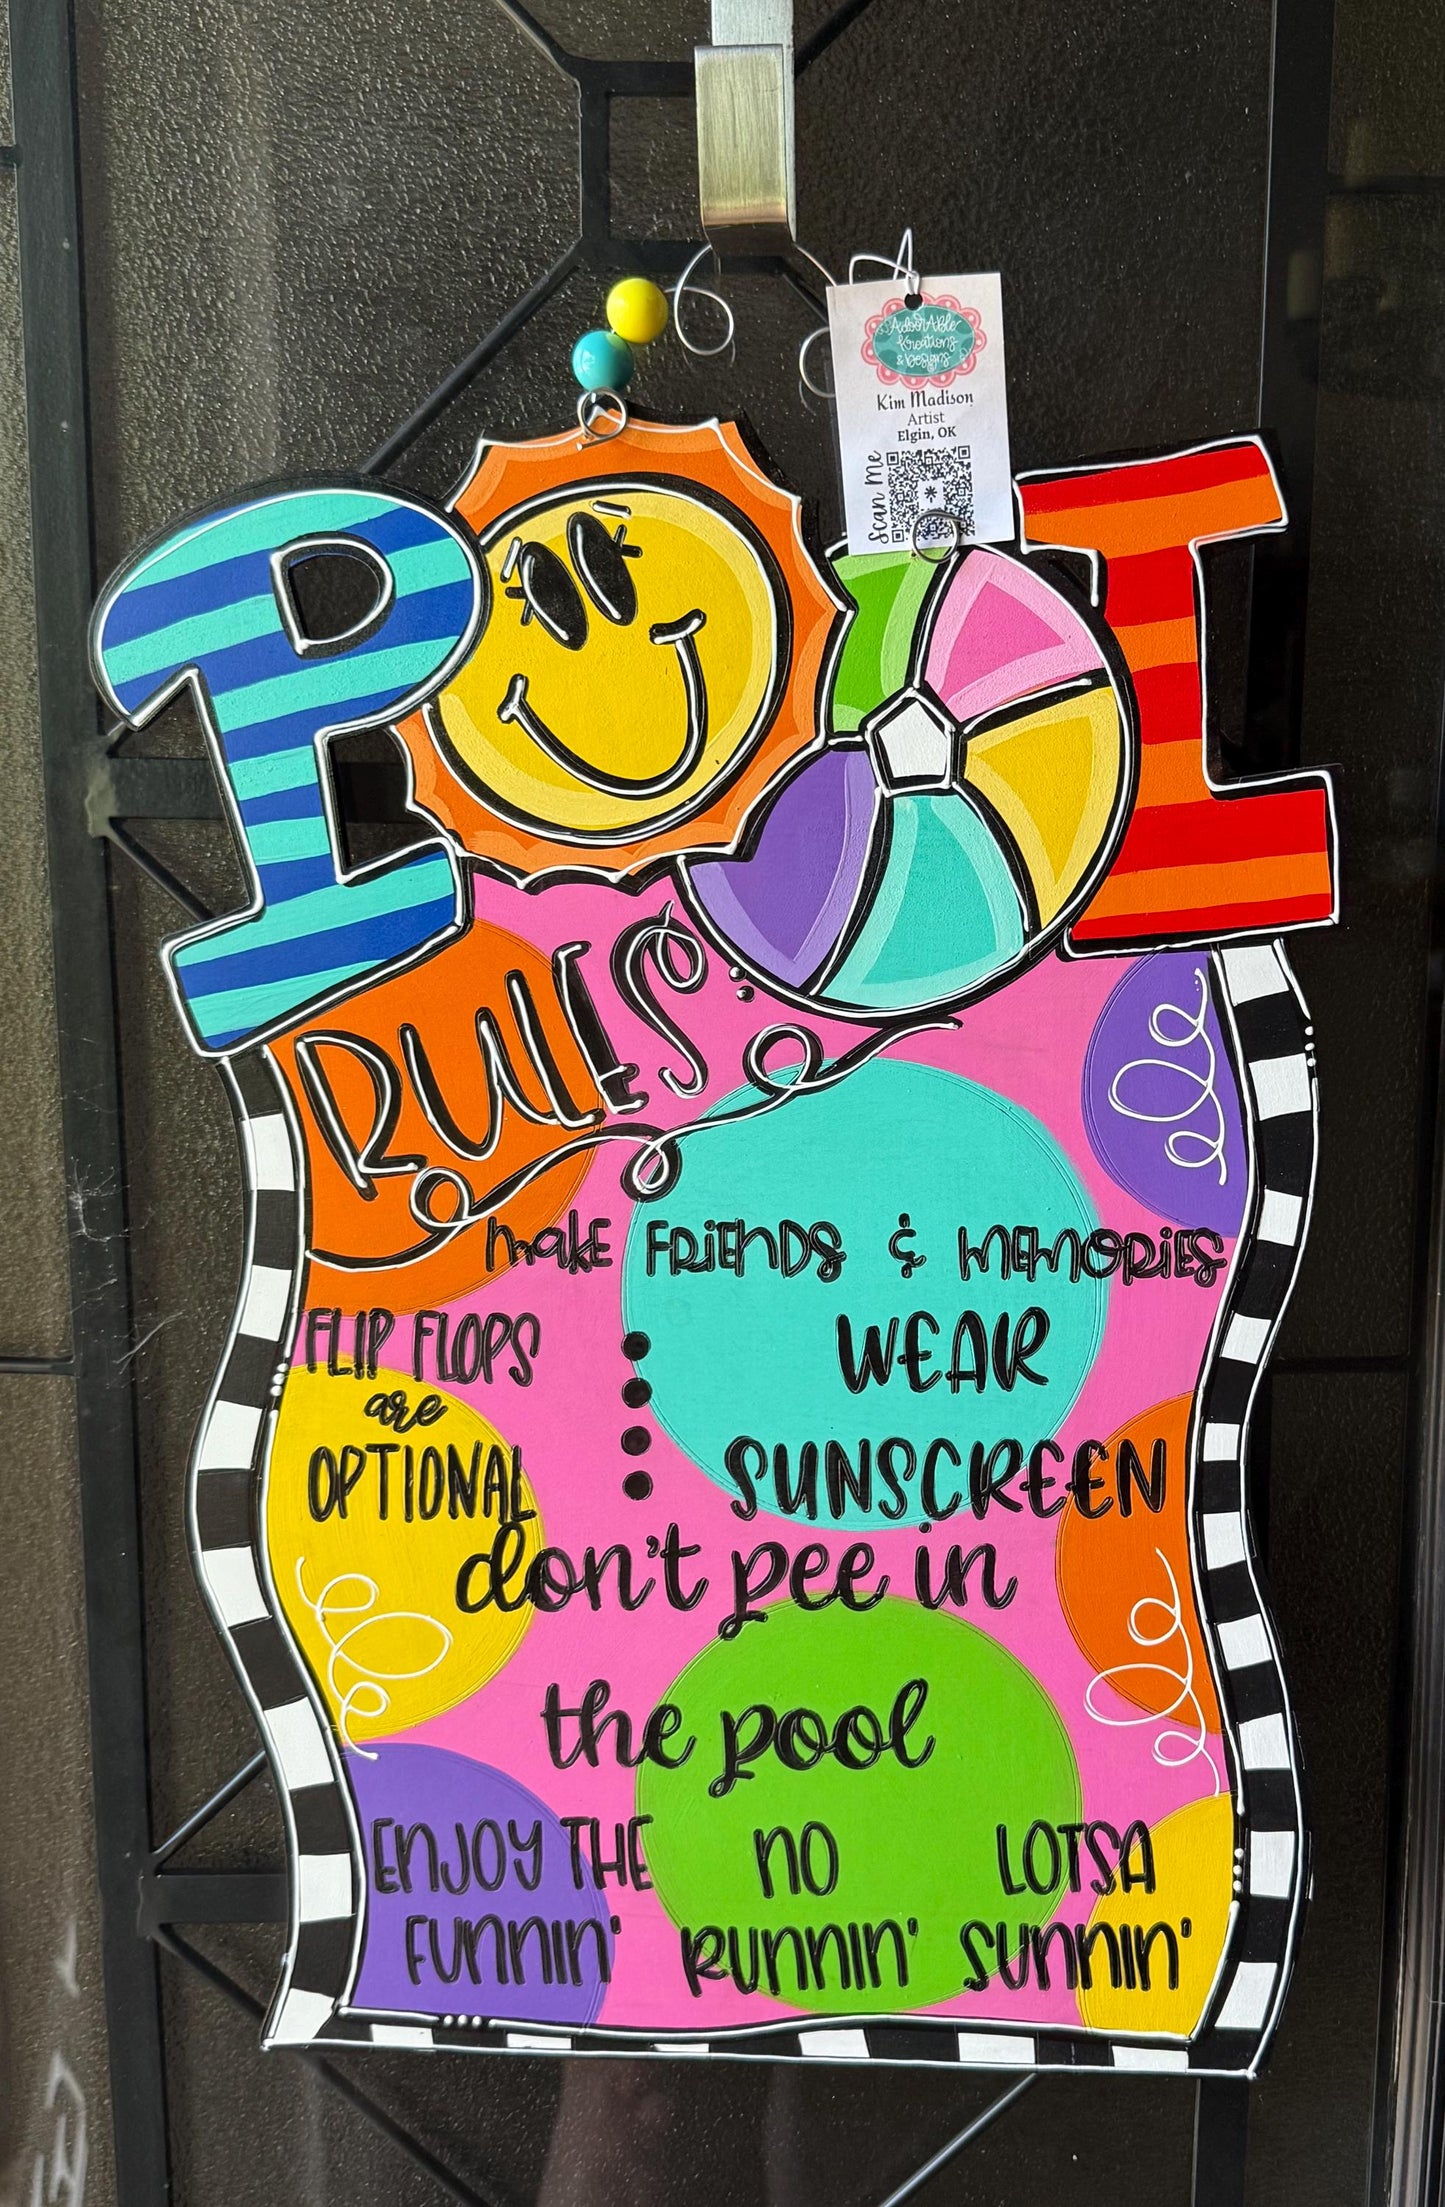 AdorAble
Kreations
& Designs
Kim Madison
Artist
Elgin, OK
Scan Me
POOl
RULES
make FRiENDS & MEMORIES
FLIP FLOPS
are
OPTIONAL
WEAR
SUNSCREEN
don't pee in
the pool
ENJOY THE
FUNNIN'
NO
RUNNIN'
LOTSA
SUNNIN'